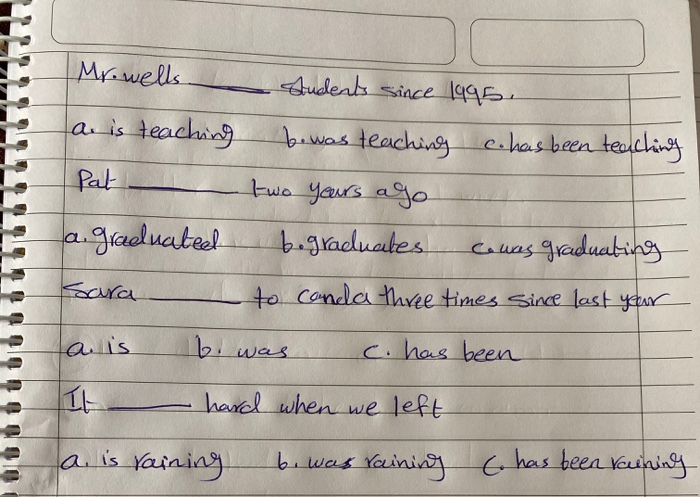 Mr. wells ______ students since 1995.
a. is teaching b. was teaching c. has been teaching
Pat ______ two years ago
a. graduated b. graduates c. was graduating
Sara ______ to canda three times since last year
a. is b. was c. has been
It ______ hard when we left
a. is raining b. was raining c. has been raining